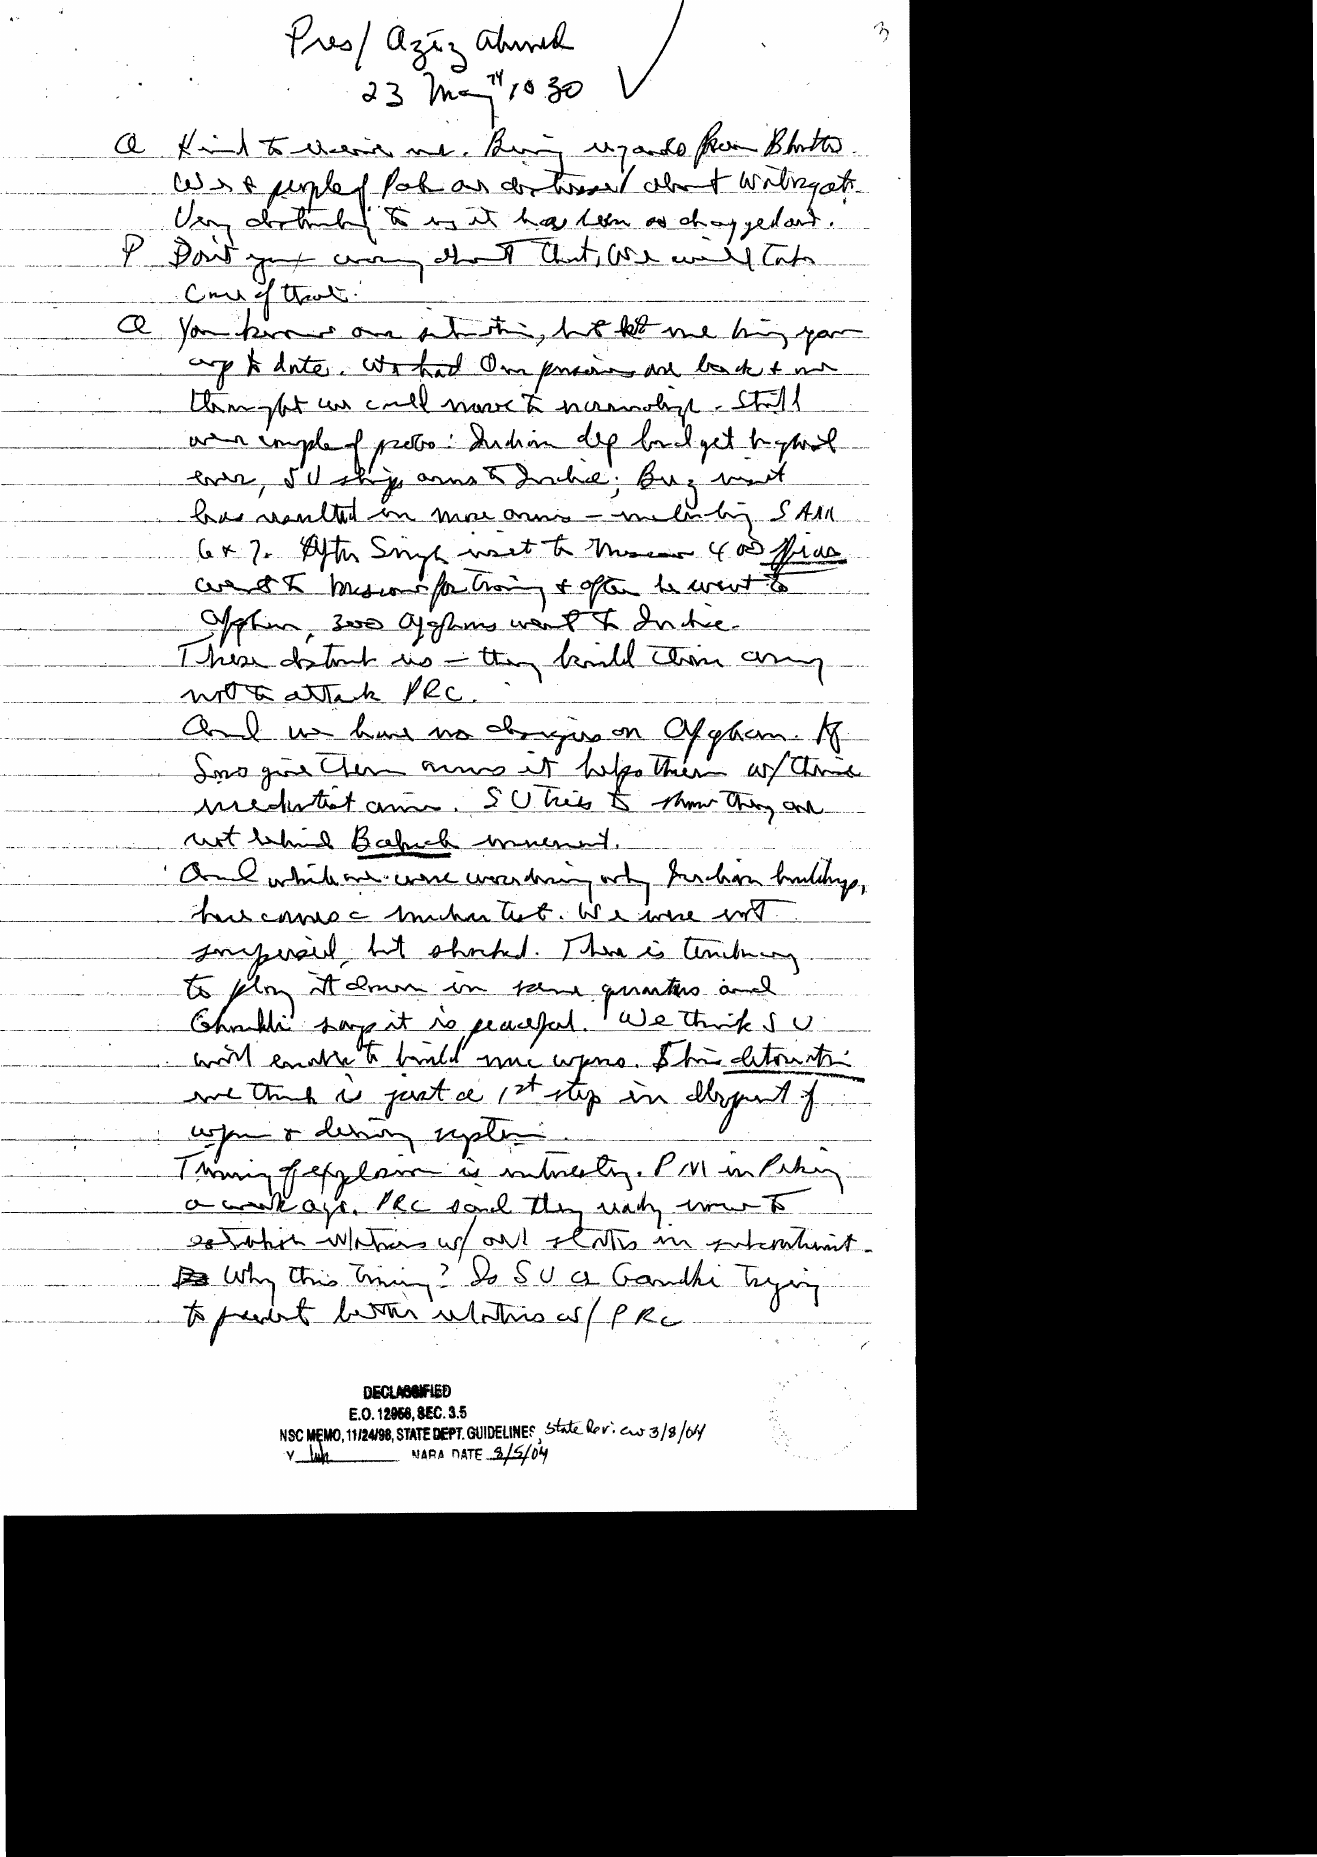 3
Pres/ Aziz Ahmed
23 May 74 10 30
A Kind to receive me. Bring regards from Bhutto.
We & people of Pak are distressed about Watergate.
Very disturbing to us it has been so dragged out.
P Don't you worry about that, we will take
care of that.
A You know our situation, but let me bring you
up to date. We had Our prisoners are back & we
thought we could move to normalize. Still
are couple of probs: Indian def budget highest
ever, SU ships arms to India; Brez visit
has resulted in more arms – including SAM
6 & 7. After Singh visit to Moscow 400
went to Moscow for training & after he went to
Afghan, 300 Afghans went to India.
These disturb us – they build their army
not to attack PRC.
And we have no designs on Afghan. If
Sovs give them arms it helps them w/ their
irredentist aim. SU tries to show they are
not behind Baluch movement.
And while we were wondering why Indian buildup,
here comes a nuclear test. We were not
surprised, but shocked. There is tendency
to play it down in some quarters and
Ghandi says it is peaceful. We think SU
will enable to build nuc wpns. This detonation
we think is just a 1st step in dlvpment of
wpn & delivery system.
Timing of explosion is interesting. PM in Peking
a week ago. PRC said they ready now to
establish relations w/ all states in subcontinent.
Why this timing? Is SU & Gandhi trying
to prevent better relations w/ PRC
DECLASSIFIED
E.O. 12958, SEC. 3.5
NSC MEMO, 11/24/98, STATE DEPT. GUIDELINES, State Review 3/8/04
NARA DATE 3/5/04